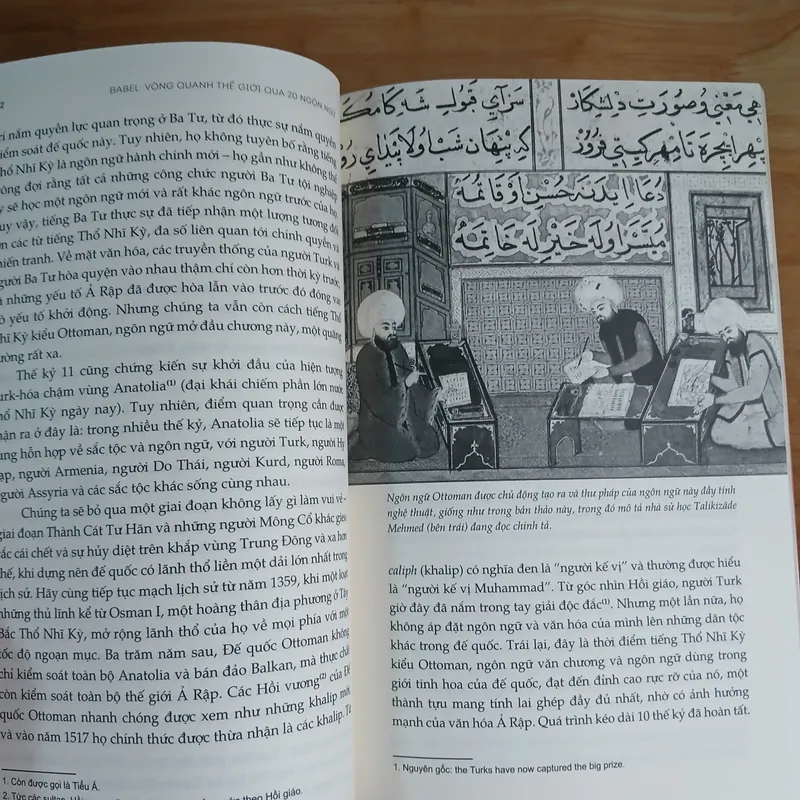 2
BABEL VÒNG QUANH THẾ GIỚI QUA 20 NGÔN NGỮ
nắm quyền lực quan trọng ở Ba Tư, từ đó thực sự nắm quyền
kiểm soát đế quốc này. Tuy nhiên, họ không tuyên bố rằng tiếng
Thổ Nhĩ Kỳ là ngôn ngữ hành chính mới – họ gần như không thể
đợi rằng tất cả những công chức người Ba Tư tội nghiệp
sẽ học một ngôn ngữ mới và rất khác ngôn ngữ trước của họ.
vậy, tiếng Ba Tư thực sự đã tiếp nhận một lượng tương đối
các từ tiếng Thổ Nhĩ Kỳ, đa số liên quan tới chính quyền và
chiến tranh. Về mặt văn hóa, các truyền thống của người Turk và
người Ba Tư hòa quyện vào nhau thậm chí còn hơn thời kỳ trước,
những yếu tố Ả Rập đã được hòa lẫn vào trước đó đóng vai
yếu tố khởi động. Nhưng chúng ta vẫn còn cách tiếng Thổ
Nhĩ Kỳ kiểu Ottoman, ngôn ngữ mở đầu chương này, một quãng
đường rất xa.
Thế kỷ 11 cũng chứng kiến sự khởi đầu của hiện tượng
Turk-hóa chậm vùng Anatolia(1) (đại khái chiếm phần lớn nước
Thổ Nhĩ Kỳ ngày nay). Tuy nhiên, điểm quan trọng cần được
nhận ra ở đây là: trong nhiều thế kỷ, Anatolia sẽ tiếp tục là một
vùng hỗn hợp về sắc tộc và ngôn ngữ, với người Turk, người Hy
Lạp, người Armenia, người Do Thái, người Kurd, người Roma,
người Assyria và các sắc tộc khác sống cùng nhau.
Chúng ta sẽ bỏ qua một giai đoạn không lấy gì làm vui vẻ –
giai đoạn Thành Cát Tư Hãn và những người Mông Cổ khác gieo
rắc cái chết và sự hủy diệt trên khắp vùng Trung Đông và xa hơn
thế, khi dựng nên đế quốc có lãnh thổ liền một dải lớn nhất trong
lịch sử. Hãy cùng tiếp tục mạch lịch sử từ năm 1359, khi một loạt
những thủ lĩnh kể từ Osman I, một hoàng thân địa phương ở Tây
Bắc Thổ Nhĩ Kỳ, mở rộng lãnh thổ của họ về mọi phía với một
tốc độ ngoạn mục. Ba trăm năm sau, Đế quốc Ottoman không
chỉ kiểm soát toàn bộ Anatolia và bán đảo Balkan, mà thực chất
còn kiểm soát toàn bộ thế giới Ả Rập. Các Hồi vương(2) của Đế
quốc Ottoman nhanh chóng được xem như những khalip mới,
và vào năm 1517 họ chính thức được thừa nhận là các khalip. Từ
1. Còn được gọi là Tiểu Á.
2. Tức các sultan, theo Hồi giáo.
Ngôn ngữ Ottoman được chủ động tạo ra và thư pháp của ngôn ngữ này đầy tính
nghệ thuật, giống như trong bản thảo này, trong đó mô tả nhà sử học Talikizâde
Mehmed (bên trái) đang đọc chính tả.
caliph (khalip) có nghĩa đen là “người kế vị” và thường được hiểu
là “người kế vị Muhammad”. Từ góc nhìn Hồi giáo, người Turk
giờ đây đã nắm trong tay giải độc đắc(1). Nhưng một lần nữa, họ
không áp đặt ngôn ngữ và văn hóa của mình lên những dân tộc
khác trong đế quốc. Trái lại, đây là thời điểm tiếng Thổ Nhĩ Kỳ
kiểu Ottoman, ngôn ngữ văn chương và ngôn ngữ dùng trong
giới tinh hoa của đế quốc, đạt đến đỉnh cao rực rỡ của nó, một
thành tựu mang tính lai ghép đầy đủ nhất, nhờ có ảnh hưởng
mạnh của văn hóa Ả Rập. Quá trình kéo dài 10 thế kỷ đã hoàn tất.
1. Nguyên gốc: the Turks have now captured the big prize.